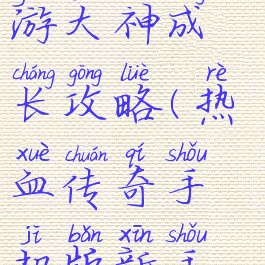 游大神成
cháng gōng lüè rè
长攻略(热
xuè chuán qí shǒu
血传奇手
jī bǎn xīn shǒu
机版新手